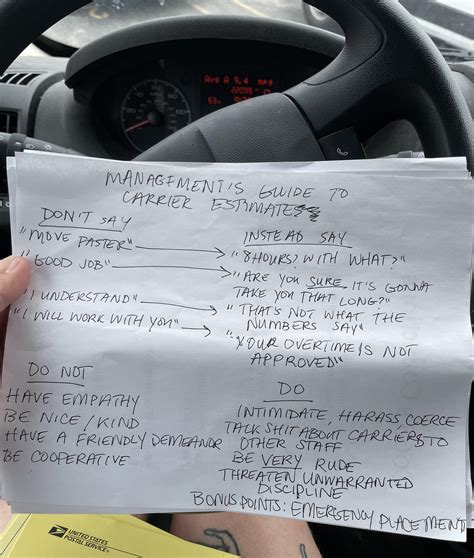 Avg A 9.4 mpg
22099
63
MANAGEMENT'S GUIDE TO
CARRIER ESTIMATES
DON'T SAY
INSTEAD SAY
"MOVE FASTER"
"8HOURS! WITH WHAT?"
"GOOD JOB"
"ARE YOU SURE IT'S GONNA
TAKE YOU THAT LONG?"
"I UNDERSTAND"
"THAT'S NOT WHAT THE
NUMBERS SAY"
"I WILL WORK WITH YOU"
"YOUR OVERTIME IS NOT
APPROVED"
DO NOT
HAVE EMPATHY
BE NICE/KIND
HAVE A FRIENDLY DEMEANOR
BE COOPERATIVE
DO
INTIMIDATE, HARASS, COERCE
TALK SHIT ABOUT CARRIERS TO
OTHER STAFF
BE VERY RUDE
THREATEN UNWARRANTED
DISCIPLINE
BONUS POINTS: EMERGENCY PLACEMENT
UNITED STATES
POSTAL SERVICE